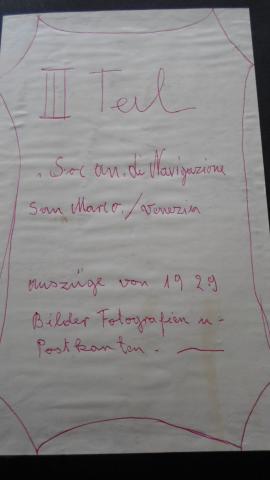 III Teil
. Soc an. di Navigazione
San Marco. / Venezia
Auszüge von 1929
Bilder Fotografien u-
Postkarten. —